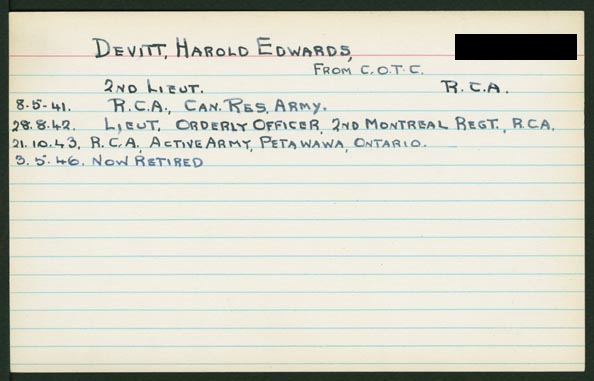 DEVITT, HAROLD EDWARDS,
FROM C.O.T.C.
2ND LIEUT. R.C.A.
8.5.41. R.C.A., CAN. RES. ARMY.
28.8.42. LIEUT. ORDERLY OFFICER, 2ND MONTREAL REGT., R.C.A.
21.10.43, R.C.A. ACTIVE ARMY, PETAWAWA, ONTARIO.
3.5.46. NOW RETIRED